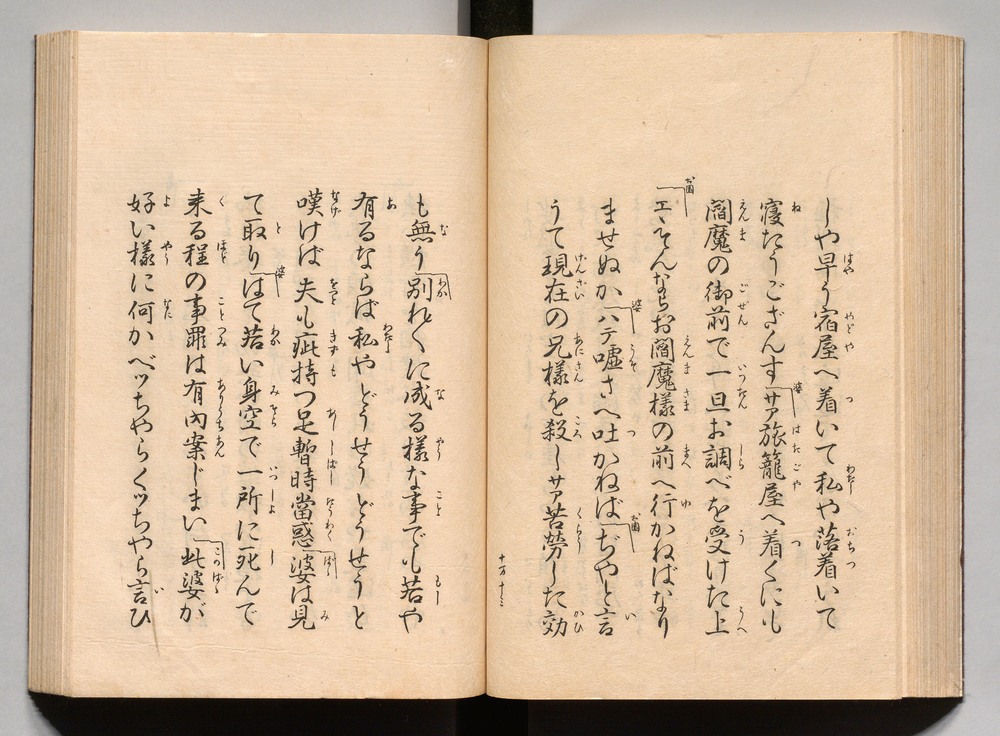 しや早う宿屋へ着いて私や落着いて
寝たうござんす「サア旅籠屋へ着くにも
閻魔の御前で一旦お調べを受けた上
「エヽそんならお閻魔様の前へ行かねばなり
ませぬか「ハテ嘘さへ吐かねば「ぢやと言
うて現在の兄様を殺しサア苦労した効
十万 十三
も無う「別れ〱に成る様な事でも若や
有るならば私やどうせうどうせうと
嘆けば 夫も疵持つ足暫時當惑「婆は見
て取り「はて若い身空で一所に死んで
来る程の事罪は有内案じまい「此婆が
好い様に何かべツちやらくツちやら言ひ